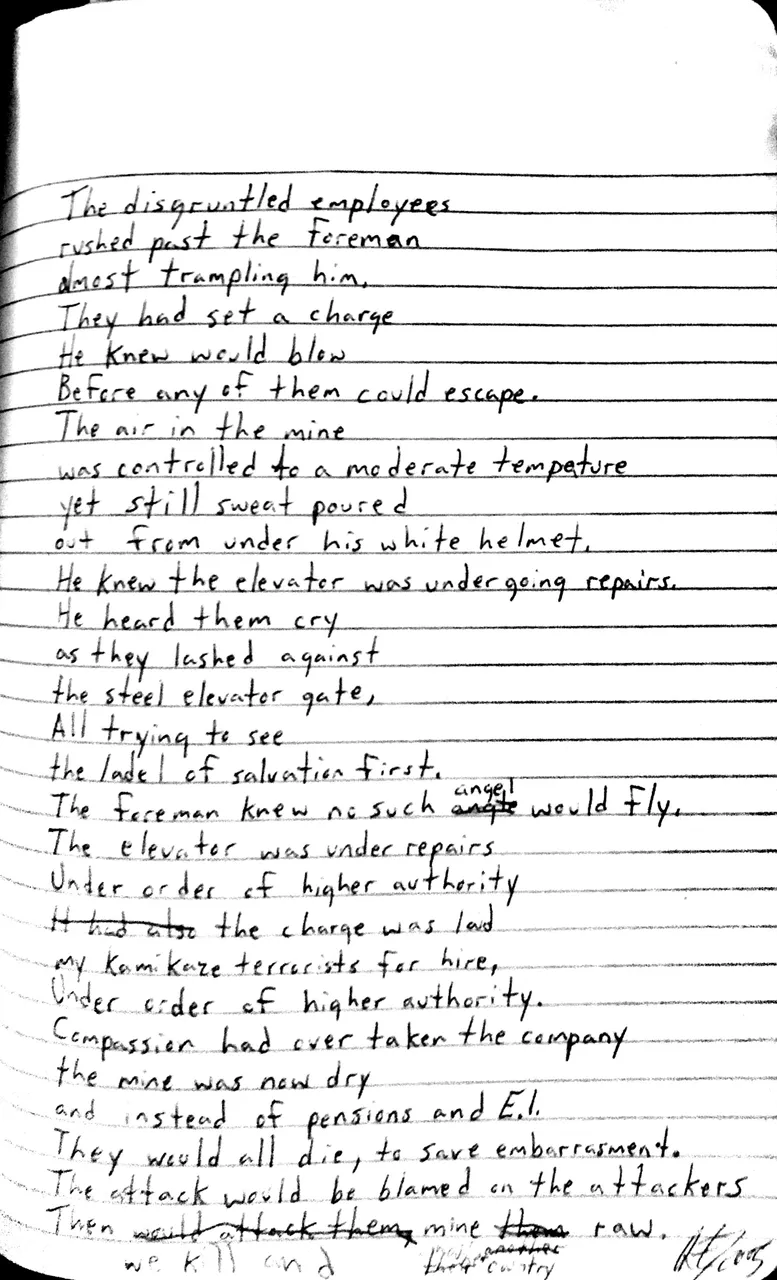 The disgruntled employees
rushed past the foreman
almost trampling him.
They had set a charge
He knew would blow
Before any of them could escape.
The air in the mine
was controlled to a moderate tempeture
yet still sweat poured
out from under his white helmet.
He knew the elevator was undergoing repairs.
He heard them cry
as they lashed against
the steel elevator gate,
All trying to see
the ladel of salvation first.
angel
The foreman knew no such angle would fly.
The elevator was under repairs
Under order of higher authority
It had also the charge was laid
my Kamikaze terrorists for hire,
Under order of higher authority.
Compassion had over taken the company
the mine was now dry
and instead of pensions and E.I.
They would all die, to save embarrasment.
The attack would be blamed on the attackers
Then would attack them, mine them raw.
we kill and another
their country /2005